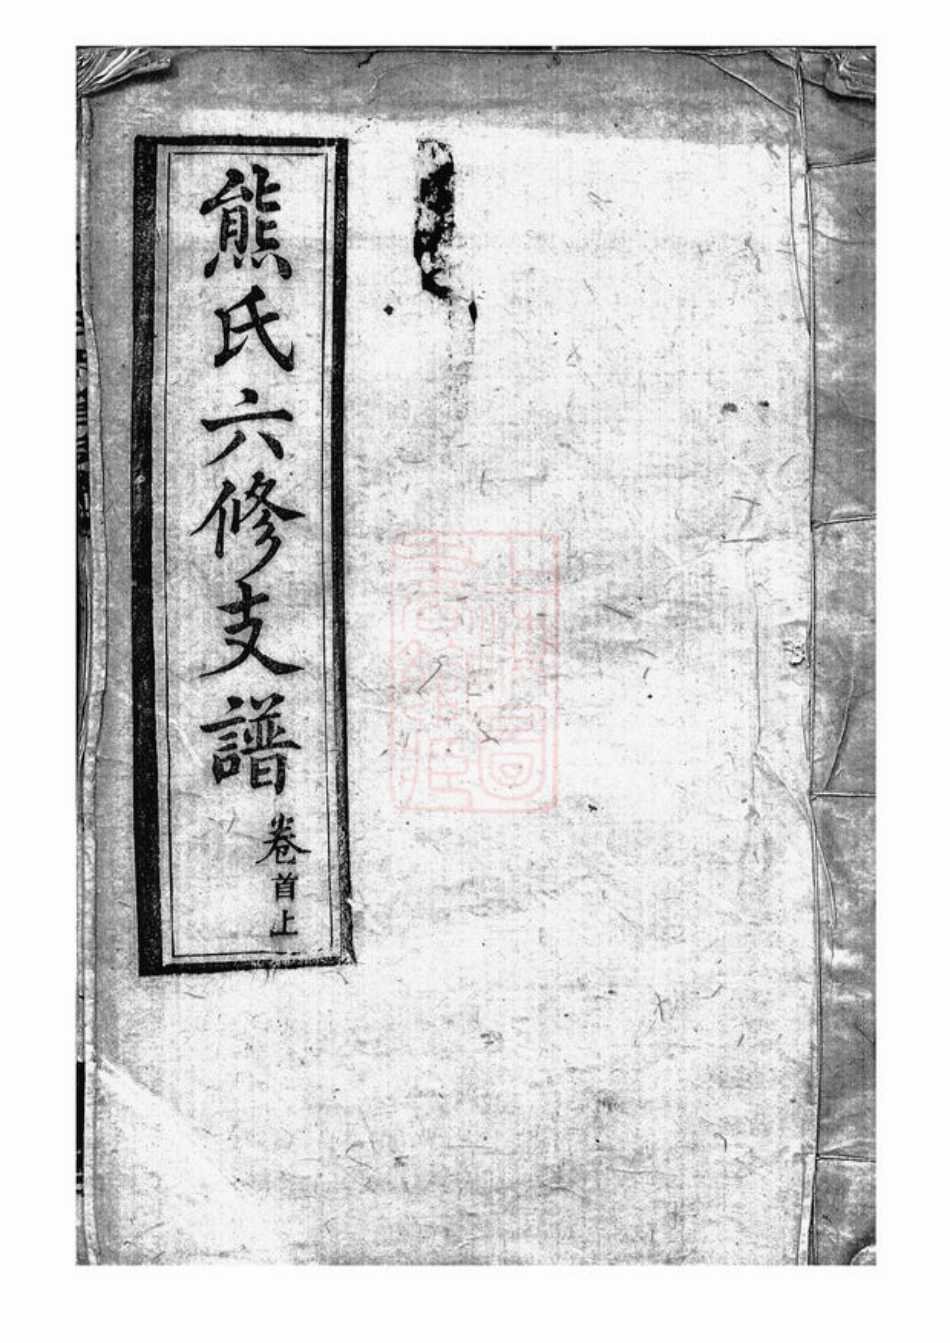 熊氏六修支譜
卷首上
上海圖書館藏